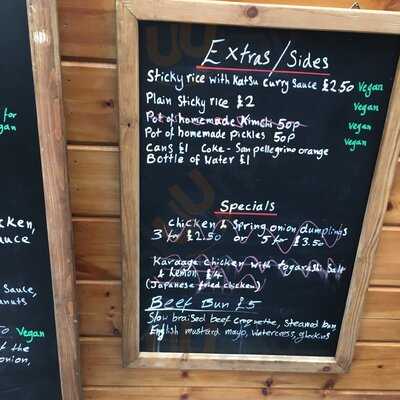 for
gan
cken,
auce
Sauce,
anuts
to Vegan
f the
onion,
Extras/Sides
Sticky rice with Katsu Curry Sauce £2.50 Vegan
Plain Sticky rice £2 Vegan
Pot of homemade Kimchi 50p Vegan
Pot of homemade pickles 50p Vegan
Cans £1 Coke - San pellegrino orange
Bottle of Water £1
Specials
Chicken & Spring onion dumplings
3 for £2.50 or 5 for £3.50
Karaage Chicken with togarashi Salt
& Lemon £4
(Japanese fried chicken)
Beef Bun £5
Slow braised beef croquette, Steamed bun
English mustard mayo, Watercress,